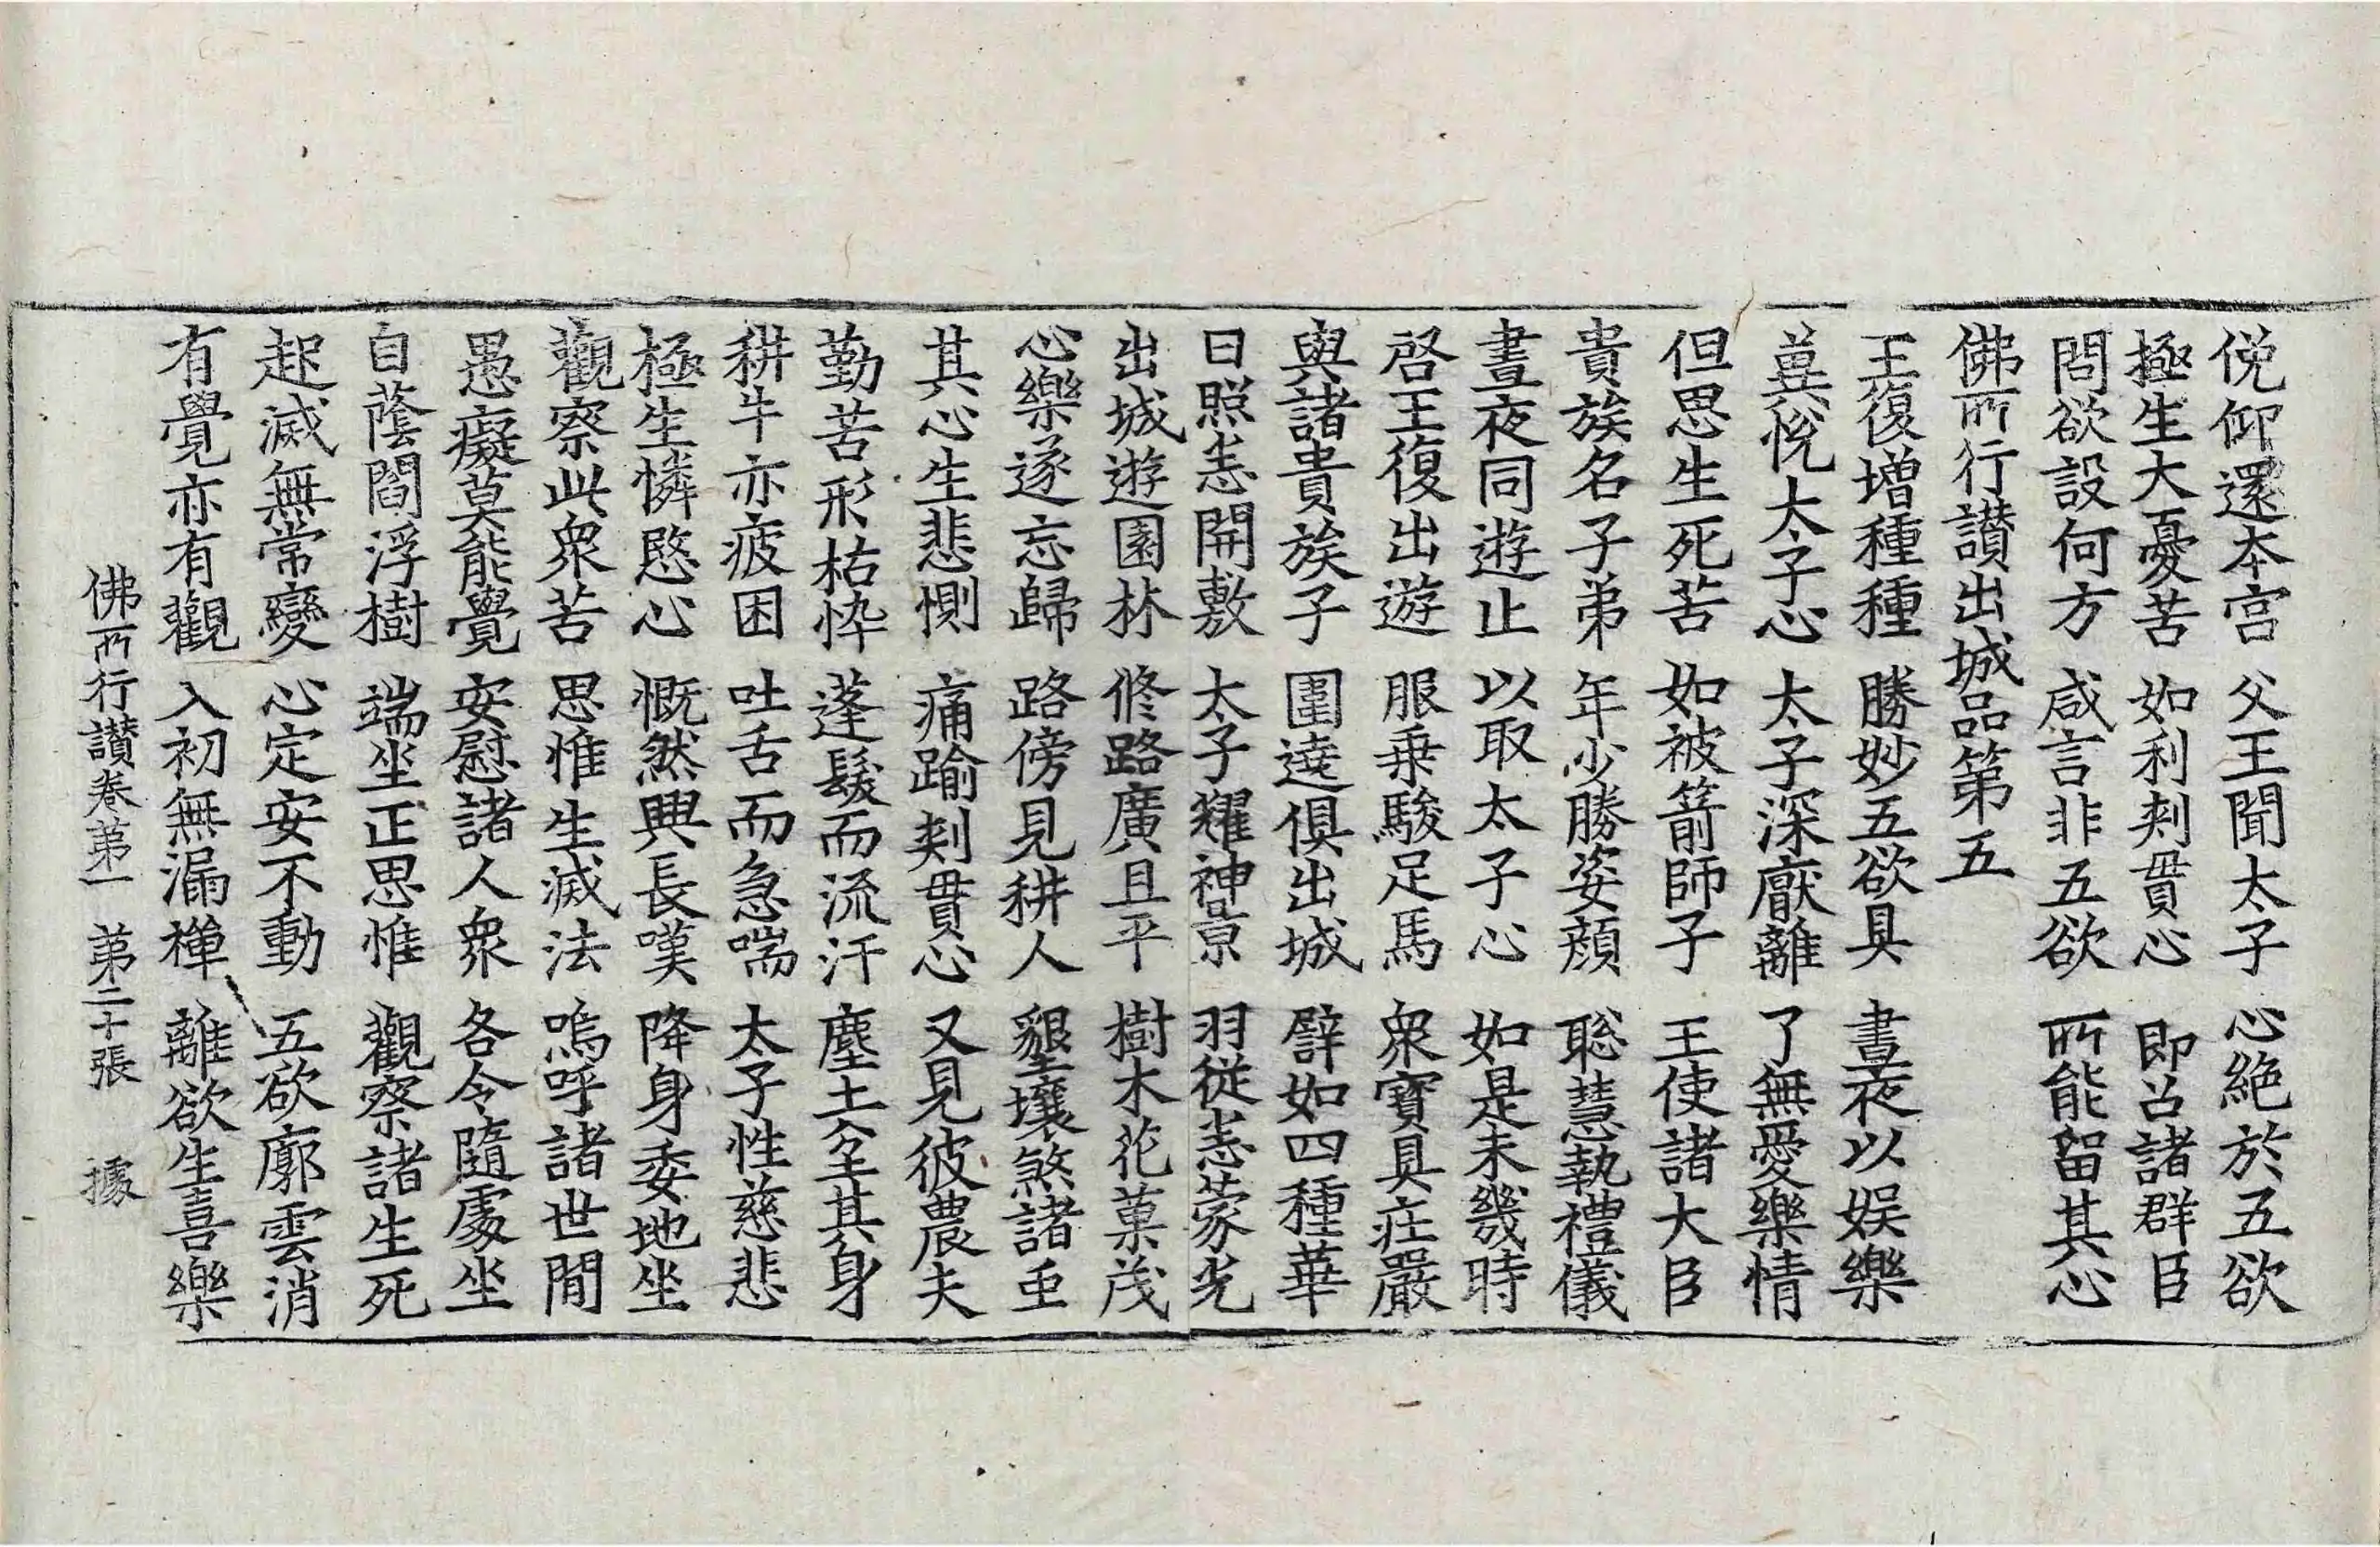 俛仰還本宮　父王聞太子　心絶於五欲
極生大憂苦　如利刾貫心　即召諸群臣
問欲設何方　咸言非五欲　所能留其心
佛所行讃出城品第五
王復增種種　勝妙五欲具　晝夜以娛樂
兾悅太子心　太子深猒離　了無愛樂情
但思生死苦　如被箭師子　王使諸大臣
貴族名子弟　年少勝姿顔　聡慧執禮儀
晝夜同遊止　以取太子心　如是未幾時
啓王復出遊　服乗駿足馬　衆寶具莊嚴
與諸貴族子　圍遶俱出城　譬如四種華
日照悉開敷　太子耀神景　羽從悉蒙光
出城遊園林　修路廣且平　樹木花菓茂
心樂遂忘歸　路傍見耕人　墾壤煞諸虫
其心生悲惻　痛踰刾貫心　又見彼農夫
勤苦形枯悴　蓬髮而流汗　塵土坌其身
耕牛亦疲困　吐舌而急喘　太子性慈悲
極生憐愍心　慨然興長嘆　降身委地坐
觀察此衆苦　思惟生滅法　嗚呼諸世間
愚癡莫能覺　安慰諸人衆　各令隨處坐
自蔭閻浮樹　端坐正思惟　觀察諸生死
起滅無常變　心定安不動　五欲廓雲消
有覺亦有觀　入初無漏禪　離欲生喜樂
佛所行讃卷第一　第二十張　據